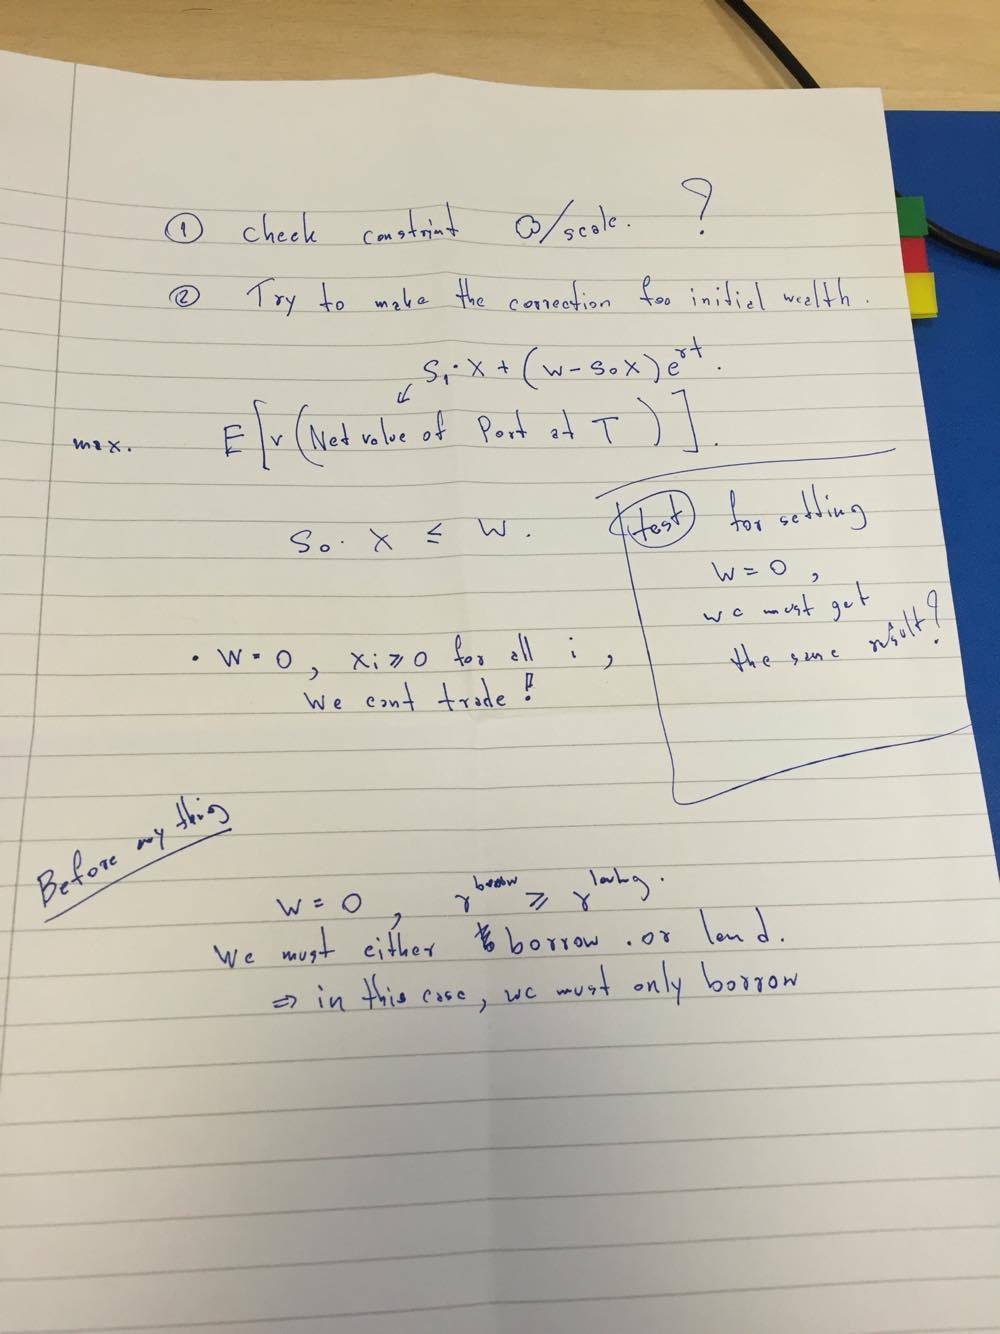 ① check constraint /scale. ?
② Try to make the correction foo initial wealth.
S₁·X + (W-S₀X)e^{rt}.
max. E[v(Net value of Port at T)].
S₀·X ≤ W.
test for setting
W=0,
we must get
the same result?
· W=0, Xi≥0 for all i,
We cant trade!
Before any thing
W=0, r^{borrow} ≥ r
We must either borrow. or lend.
⇒ in this case, we must only borrow